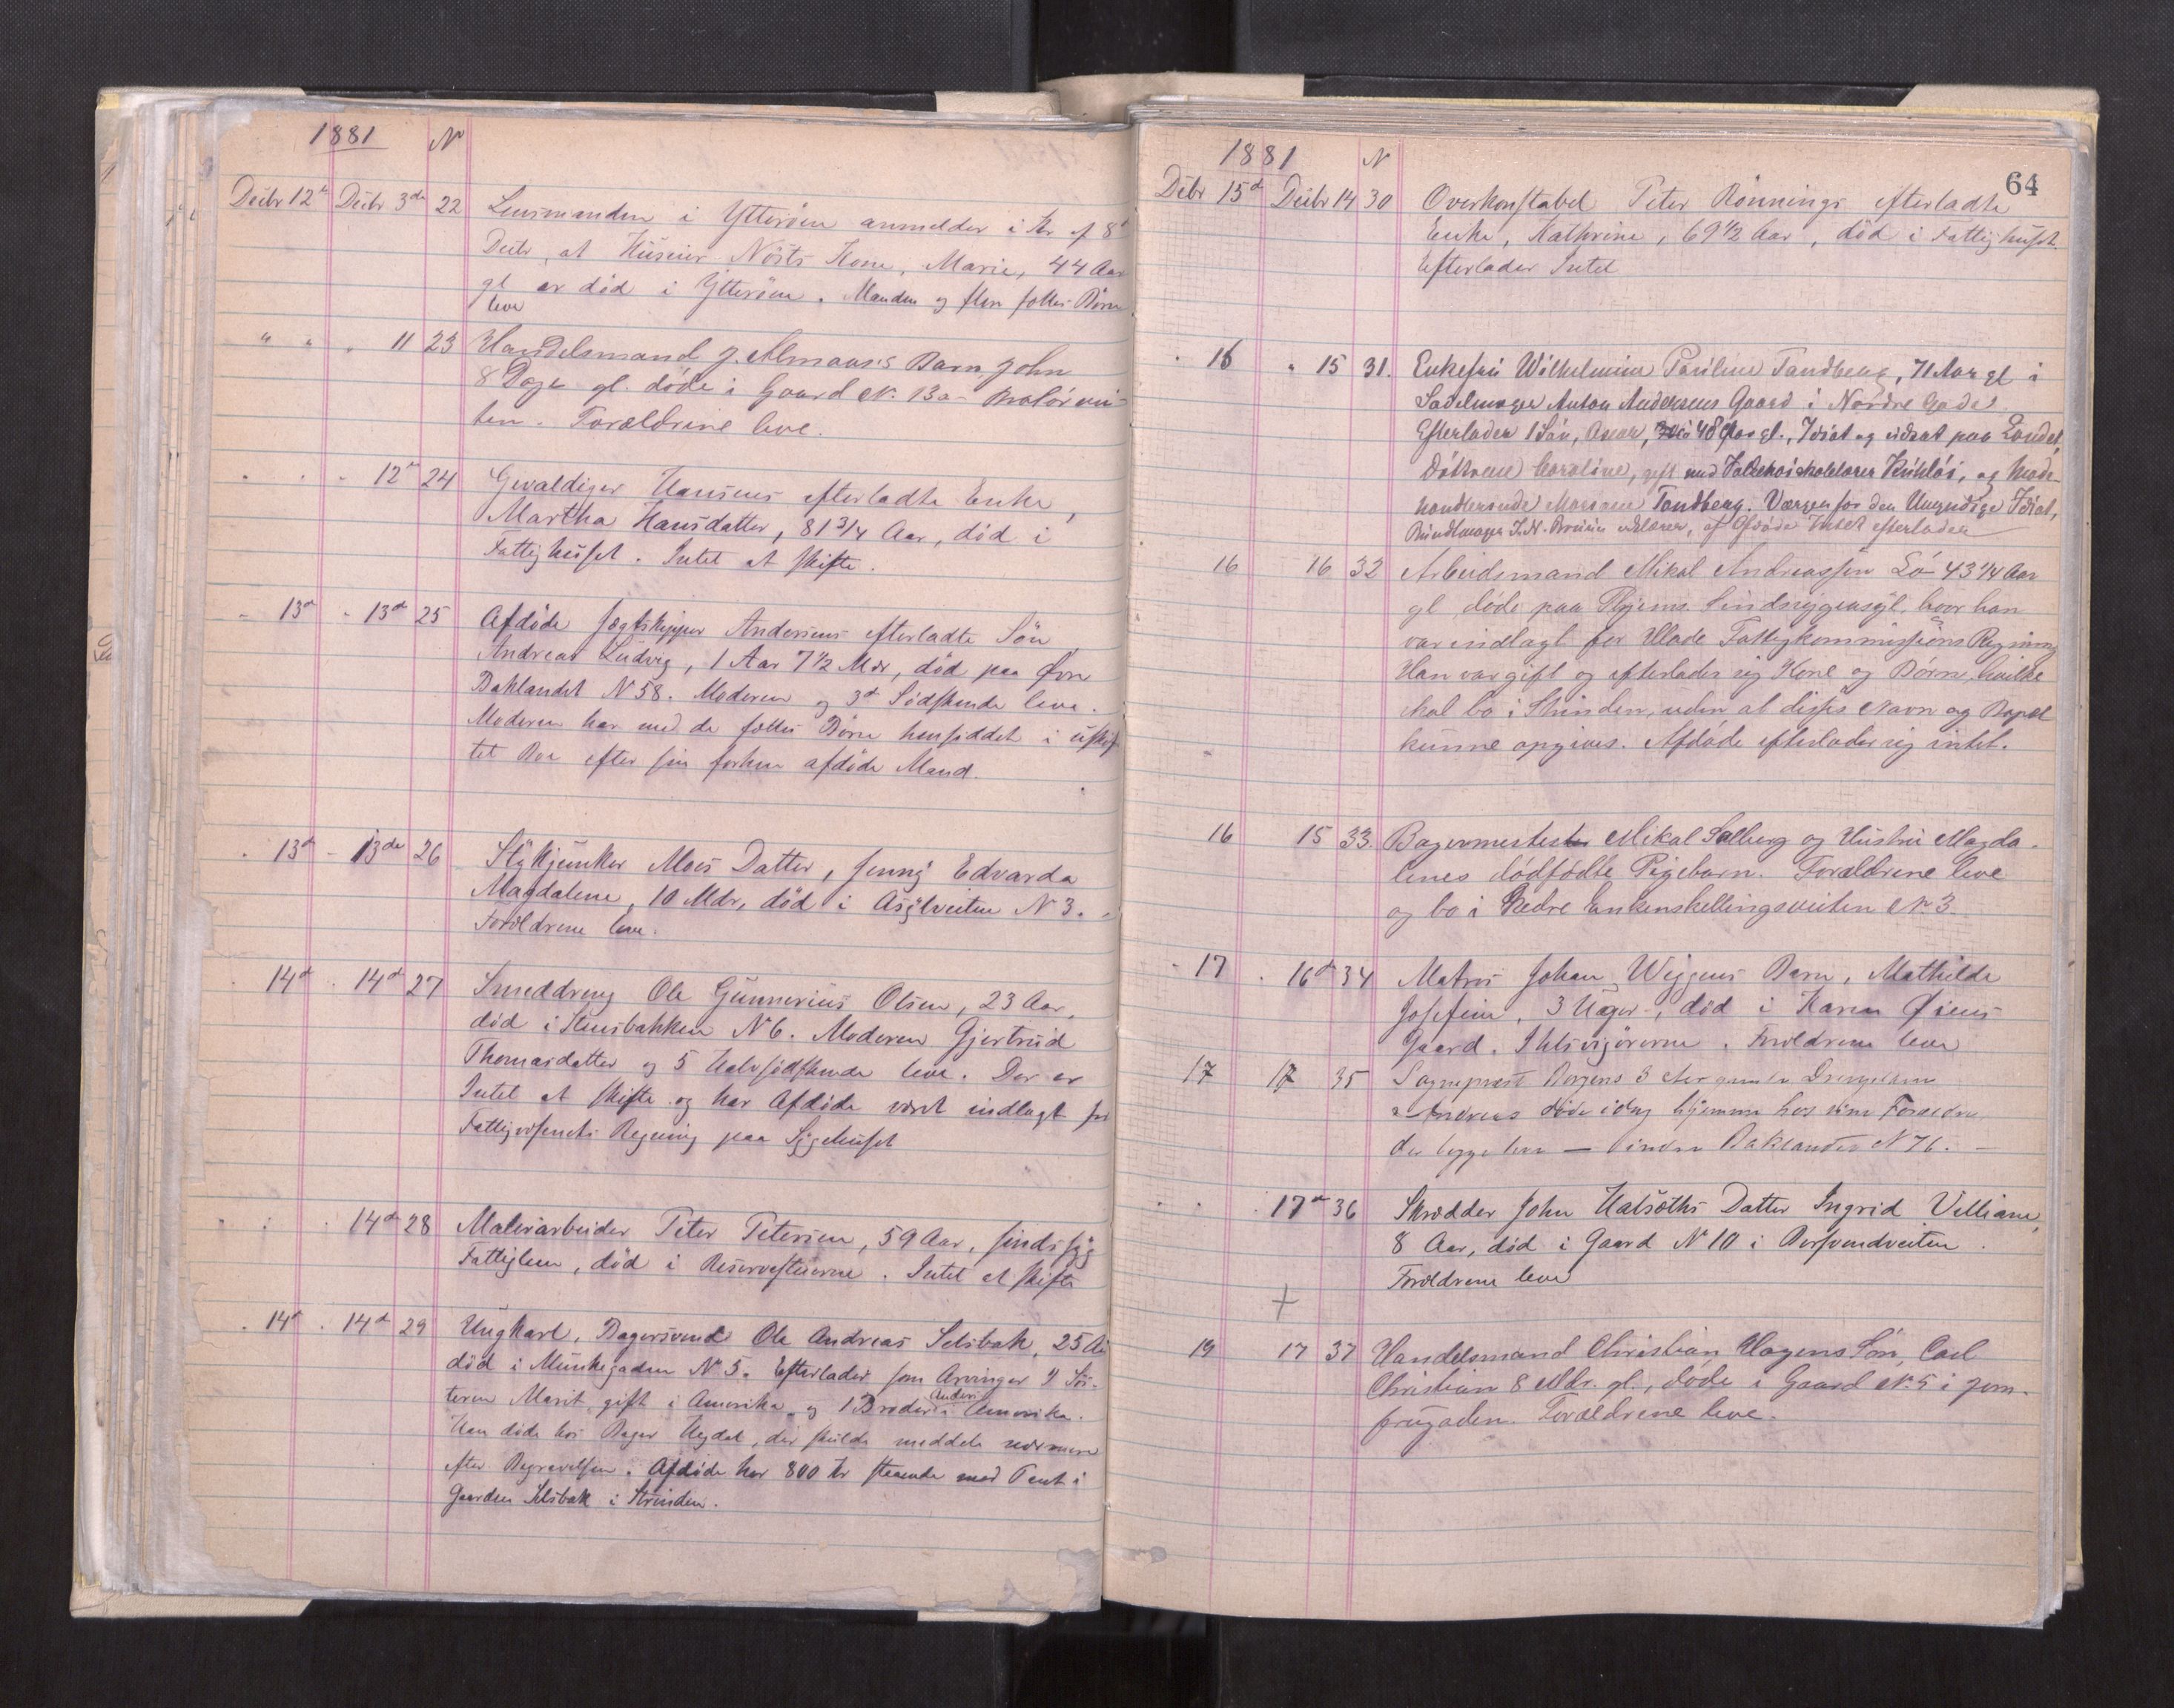 1881 N
Decbr 12te Decbr 3de 22 Lensmanden i Ytterøen anmelder i Br af 8d
Decbr, at Huseier Nøsts Kone, Marie, 44 Aar
gl er død i Ytterøen. Manden og flere fælles Børn
leve
" " " 11 23 Handelsmand J. Almaas's Barn, John
8 Dage gl. døde i Gaard No. 13a
ten. Forældrene leve.
" " " 12te 24 Gevaldiger Hansens efterladte Enke,
Martha Hansdatter, 81 3/4 Aar, død i
Fattighuset. Intet at skifte.
" 13de " 13de 25 Afdøde Jægtskipper Andersens efterladte Søn
Andreas Ludvig, 1 Aar 7 1/2 Mdr, død paa Øvre
Baklandet N 58. Moderen og 3de Sødskende leve.
Moderen har med de fælles Børn hensiddet i uskif-
tet Boe efter sin forhen afdøde Mand.
" 13de " 13de 26 Stykjunker Moes Datter, Jenny Edvarda
Magdalene, 10 Mdr, død i Asylveiten N 3.
Forældrene leve.
" 14de " 14de 27 Smeddreng Ole Gunnerius Olsen, 23 Aar,
død i Steensbakken N 6. Moderen Gjertrud
Thomasdatter og 5 Halvsødskende leve. Der er
Intet at skifte og har Afdøde været indlagt for
Fattigvæsenets Regning paa Sygehuset
" " " 14de 28 Malerarbeider Peter Petersen, 59 Aar, sindssyg
Fattiglem, død i Reservestuerne. Intet at skifte
" 14de " 14de 29 Ungkarl, Bagersvend Ole Andreas Selsbak, 25 Aar
død i Munkegaden N 5. Efterlader som Arvinger 1 Søs-
teren Marit, gift i Amerika, og 1 Broder Anders i Amerika.
Han døde hos Bager Hegdal, der skulde meddele nærmere
efter Begravelsen. Afdøde har 800 Kr staaende mod Pant i
Gaarden Selsbak i Strinden.
64
1881 N
Debr 15de Decbr 14 30 Overkonstabel Peter Rønnings efterladte
Enke, Kathrine, 69 1/2 Aar, død i Fattighuset.
Efterlader Intet
" 16 " 15 31. Enkefru Wilhelmine Pauline Tandberg, 71 Aar gl i
Sadelmager Anton Andersens Gaard i Nordre Gade.
Efterlader 1 Søn, Oscar, 48 Aar gl., Idiot og udsat paa Landet,
Døttrene Caroline, gift med Folkehøiskolelærer, og Mode-
handlerinde Tandberg. Værgen for den Umyndige Idiot,
Bundtmager erklærer, at Afdøde Intet efterlader
16 16 32 Arbeidsmand Mikal Andreassen Lø 43 1/4 Aar
gl døde paa Thjems Sindssygeasyl, hvor han
var indlagt for Strinde Fattigkommissions Regning
Han var gift og efterlader sig Kone og Børn, hvilke
skal bo i Strinden, uden at disses Navn og Bopel
kunne opgives. Afdøde efterlader sig intet.
16 15 33. Bagermester Mikal Solberg og Hustru Magda-
lenes dødfødte Pigebarn. Forældrene leve
og bo i Nedre Enkenskellingsveiten No 3.
" 17 " 16de 34 Matros Johan Wiggens Barn, Mathilde
Josefine, 3 Uger, død i Karen Øiens
Gaard, Ihlsvigørerne. Forældrene leve
17 17 35 Sogneprest Borgens 3 Aar gamle Drengebarn
Andreas døde idag hjemme hos sine Forældre
der begge leve — Baklandet N 76. —
" " " 17de 36 Skrædder John Halsæths Datter Ingrid Villiane,
8 Aar, død i Gaard N 10 i Bersvendveiten.
Forældrene leve
+
19 17 37 Handelsmand Christian Hagens Søn, Carl
Christian 8 Mdr. gl., døde i Gaard No. 5 i Jom-
frugaden. Forældrene leve.